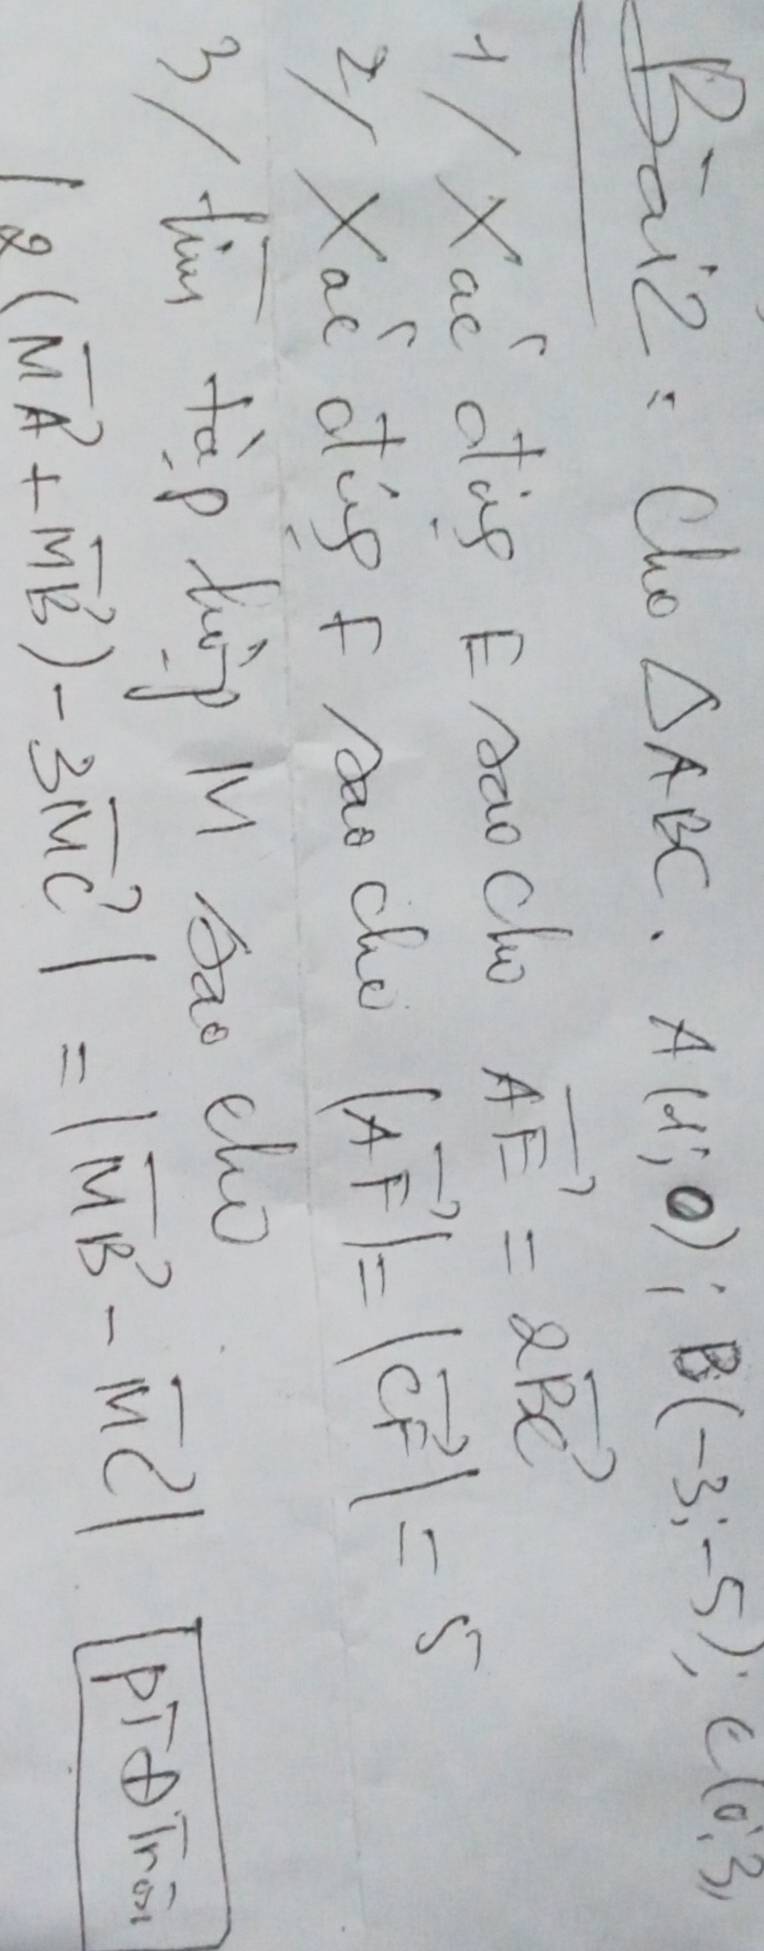 Bài 2: Cho △ABC. A(1; 0); B(-3; -5); C(0; 3,
1/ Xác định E sao cho $\overrightarrow{AE} = 2\overrightarrow{BC}$
2/ Xác định F sao cho $|\overrightarrow{AF}| = |\overrightarrow{CF}| = 5$
3/ tìm tập hợp M sao cho
$|2(\overrightarrow{MA} + \overrightarrow{MB}) - 3\overrightarrow{MC}| = |\overrightarrow{MB} - \overrightarrow{MC}|$
PT ĐTròn